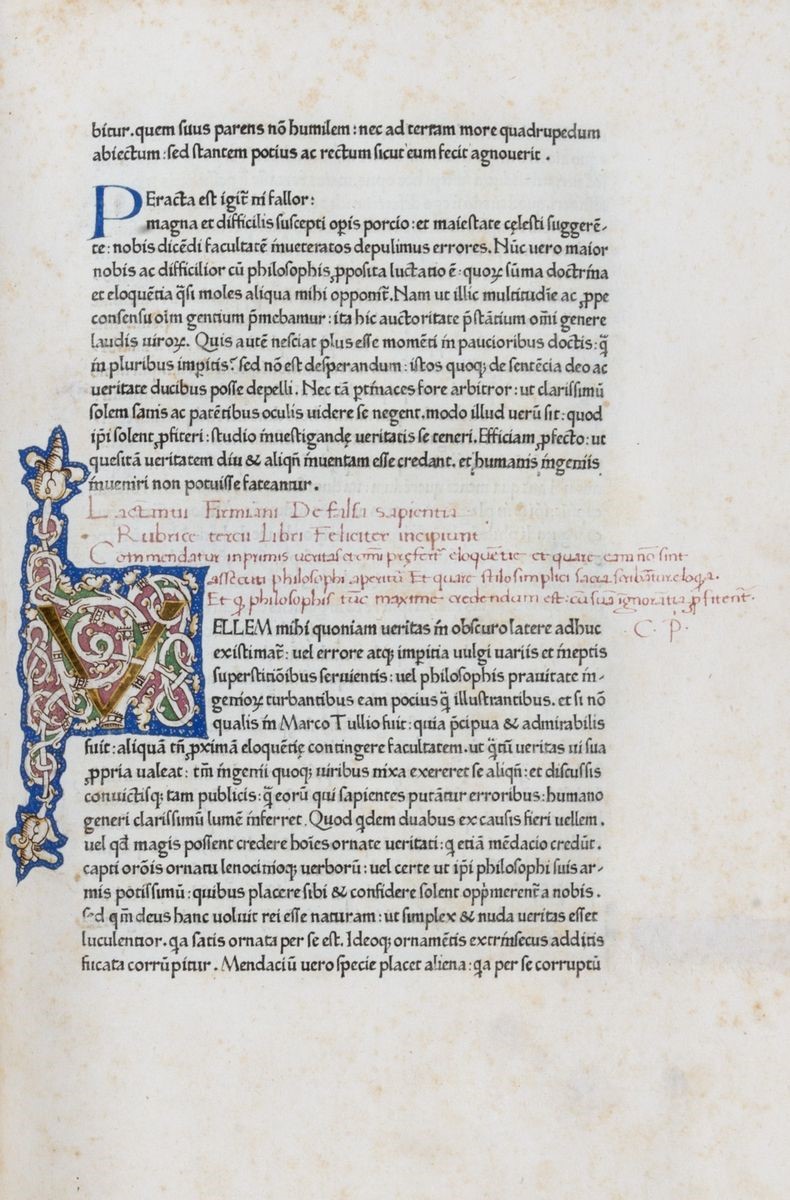 bitur. quem suus parens nō humilem: nec ad terram more quadrupedum
abiectum: sed stantem potius ac rectum sicut eum fecit agnouerit.
PEracta est igit᷑ ni fallor:
magna et difficilis suscepti opis porcio: et maiestate cęlesti suggerē-
te: nobis dicēdi facultatē inueteratos depulimus errores. Nūc uero maior
nobis ac difficilior cū philosophis ꝓposita luctatio ē: quoꝝ sūma doctrina
et eloquētia q̄si moles aliqua mihi opponit᷑. Nam ut illic multitudīe ac ꝓpe
consensu oīm gentium p̄mebamur: ita hic auctoritate p̄stātium omī genere
laudis uiroꝝ. Quis autē nesciat plus esse momēti in paucioribus doctis: q̄
in pluribus impitis? sed nō est desperandum: istos quoq; de sentēcia deo ac
ueritate ducibus posse depelli. Nec tā ptinaces fore arbitror: ut clarissimū
solem sanis ac patētibus oculis uidere se negent. modo illud uerū sit: quod
ip̄i solent ꝓfiteri: studio inuestigandę ueritatis se teneri. Efficiam ꝓfecto: ut
quesitā ueritatem diu & aliqn̄ inuentam esse credant. et humanis ingeniis
inueniri non potuisse fateantur.
Lactantii Firmiani De falsa sapientia
Rubrice tercii Libri Feliciter incipiunt
Commendatur inprimis ueritas et omī pręfert᷑ eloquētie et quare eam nō sint
assecuti philosophi aperitū Et quare stilo simplici sacra scribātur eloqa.
Et q philosophis tūc maxime credendum est: cū suā ignoratiā ꝓfitent᷑.
VELLEM mihi quoniam ueritas in obscuro latere adhuc
C. P.
existimat᷑: uel errore atq; impitia uulgi uariis et ineptis
superstitiōibus seruientis: uel philosophis prauitate in-
genioꝝ turbantibus eam pocius q̄ illustrantibus. et si nō
qualis in Marco Tullio fuit: quia p̄cipua & admirabilis
fuit: aliquā tn̄ ꝓximā eloquētię contingere facultatem. ut q̄tū ueritas ui sua
ꝓpria ualeat: tm̄ ingenii quoq; uiribus nixa exereret se aliqn̄: et discussis
conuictisq; tam publicis: q̄ eorū qui sapientes putātur erroribus: humano
generi clarissimū lumē inferret. Quod qdem duabus ex causis fieri uellem.
uel qd magis possent credere hoīes ornate ueritati: q etiā mēdacio credūt.
capti orōis ornatu lenocinioq; uerborū: uel certe ut ip̄i philosophi suis ar-
mis potissimū: quibus placere sibi & confidere solent opp̄merent᷑ a nobis.
Sed qm̄ deus hanc uoluit rei esse naturam: ut simplex & nuda ueritas esset
luculentior. qa satis ornata per se est. Ideoq; ornamētis extrinsecus additis
fucata corrūpitur. Mendaciū uero specie placet aliena: qa per se corruptū